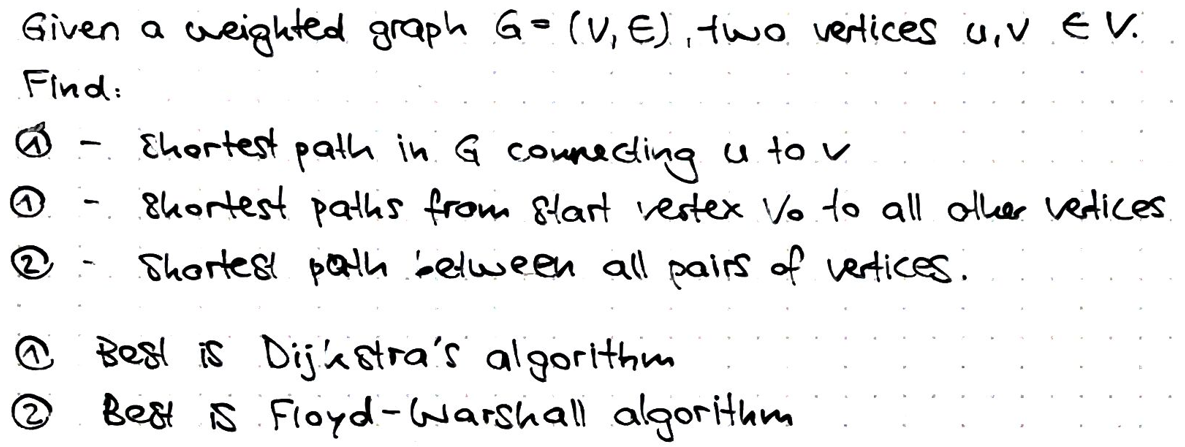 Given a weighted graph G = (V, E), two vertices u, v ∈ V.
Find:
① - Shortest path in G connecting u to v
① - Shortest paths from start vertex V₀ to all other vertices
② - Shortest path between all pairs of vertices.
① Best is Dijkstra's algorithm
② Best is Floyd-Warshall algorithm